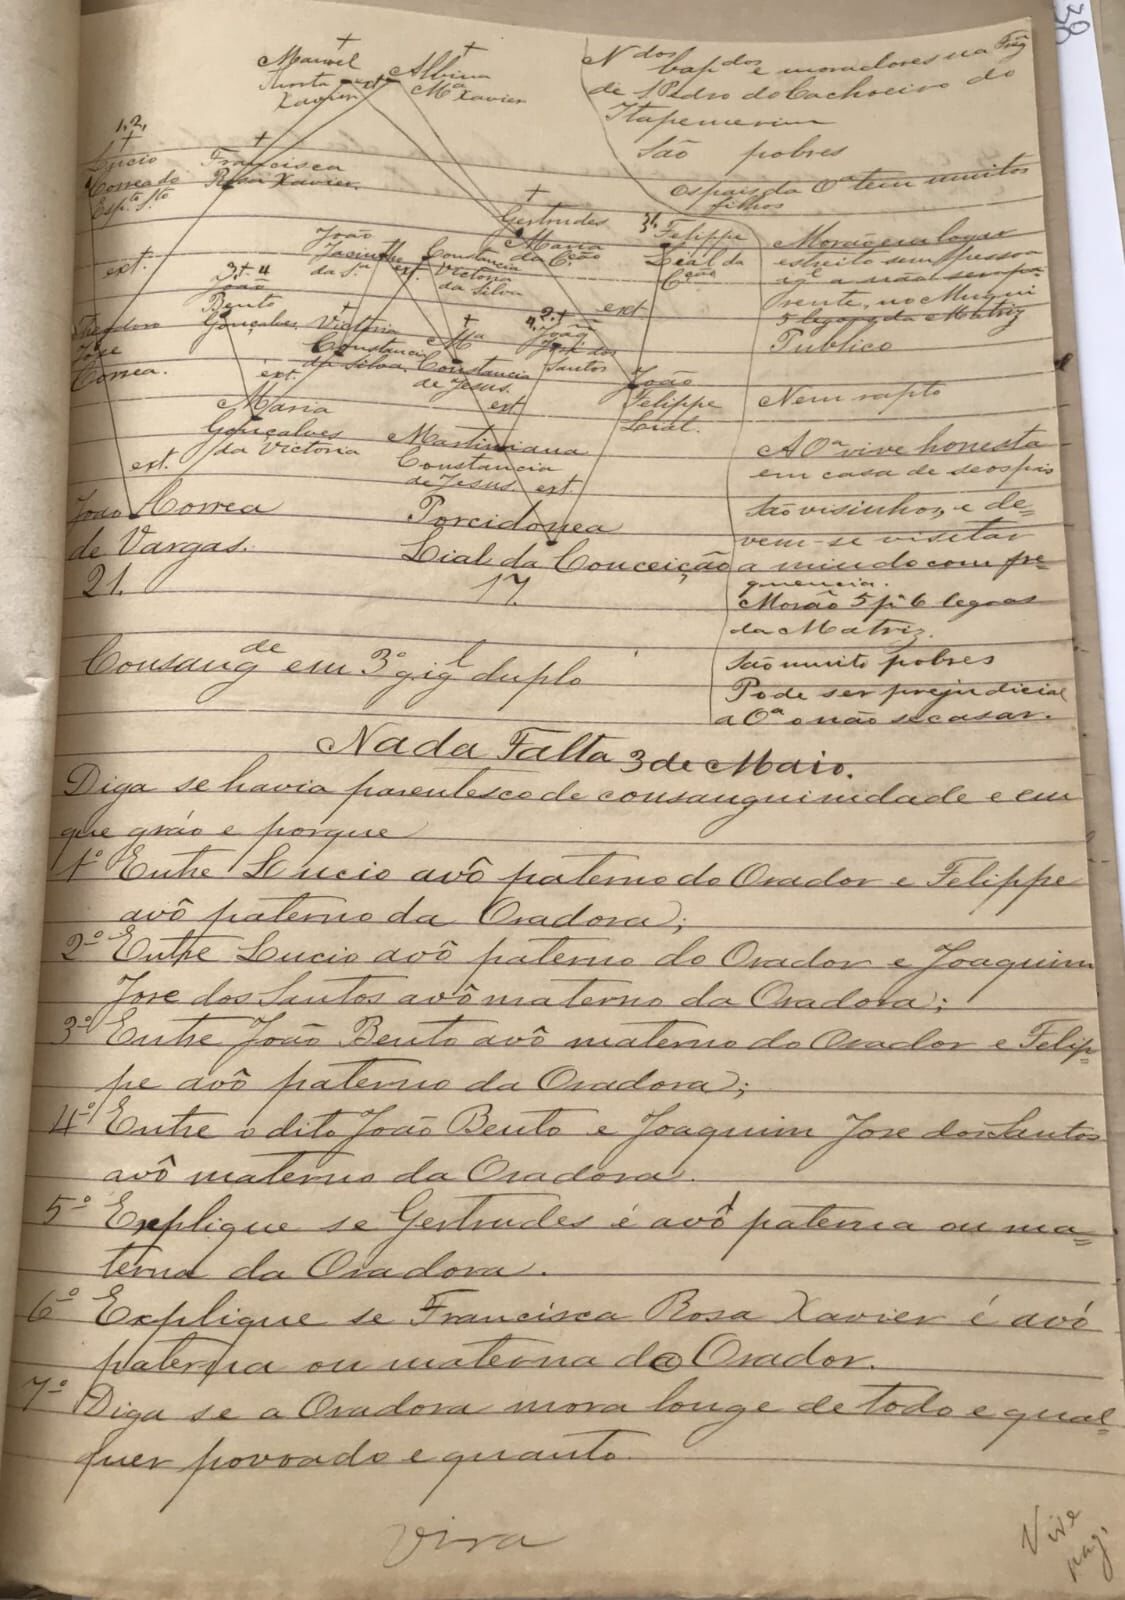 39
Manoel
Horta
Xavier
ext.
Albina
Mª Xavier
N.dos
bap.dos e moradores na Freg
de S. Pedro do Cachoeiro do
Itapemerim
São pobres
os pais da Oª tem muitos
filhos
1,2,
Lucio
Correa do
Espto Sto
Francisca
Rosa Xavier.
ext.
Gertrudes
Maria
da Cção
3,1,
Felippe
Lial da
Cção
ext.
João
Jacintho
da Sª
ext.
Constancia
Victoria
da Silva
3. 4
João
Bento
Gonçalves
Victoria
Constancia
da Silva
ext.
Mª
Constancia
de Jesus.
ext
4, 2,
João
José dos
Santos
Morão em logar
estreito sem pessoa
igl a não ser pa-
rente, no Muqui
5 legoas da Matriz
Publico
Theodoro
Jose
Correa.
Maria
Gonçalves
da Victoria
ext.
Martiniana
Constancia
de Jesus. ext.
João
Felippe
Lial.
Nem rapto
A Oª vive honesta
em casa de seos pais
São visinhos, e de-
vem-se visitar
a miudo com fre-
quencia.
Morão 5 pª 6 legoas
da Matriz.
São muito pobres
Pode ser prejudicial
a Oª o não se casar.
João Correa
de Vargas.
21.
Porcidonea
Lial da Conceição
17.
Consangde em 3º g. igl duplo
Nada Falta 3 de Maio.
Diga se havia parentesco de consanguinidade e em
que gráo e porque
1º Entre Lucio avô paterno do Orador e Felippe
avô paterno da Oradora;
2º Entre Lucio avô paterno do Orador e Joaquim
Jose dos Santos avô materno da Oradora;
3º Entre João Bento avô materno do Orador e Felip-
pe avô paterno da Oradora;
4º Entre o dito João Bento e Joaquim Jose dos Santos
avô materno da Oradora.
5º Explique se Gertrudes é avó paterna ou ma-
terna da Oradora.
6º Explique se Francisca Rosa Xavier é avó
paterna ou materna do Orador.
7º Diga se a Oradora mora longe de todo e qual-
quer povoado e quanto.
Vira
Vire
pag.